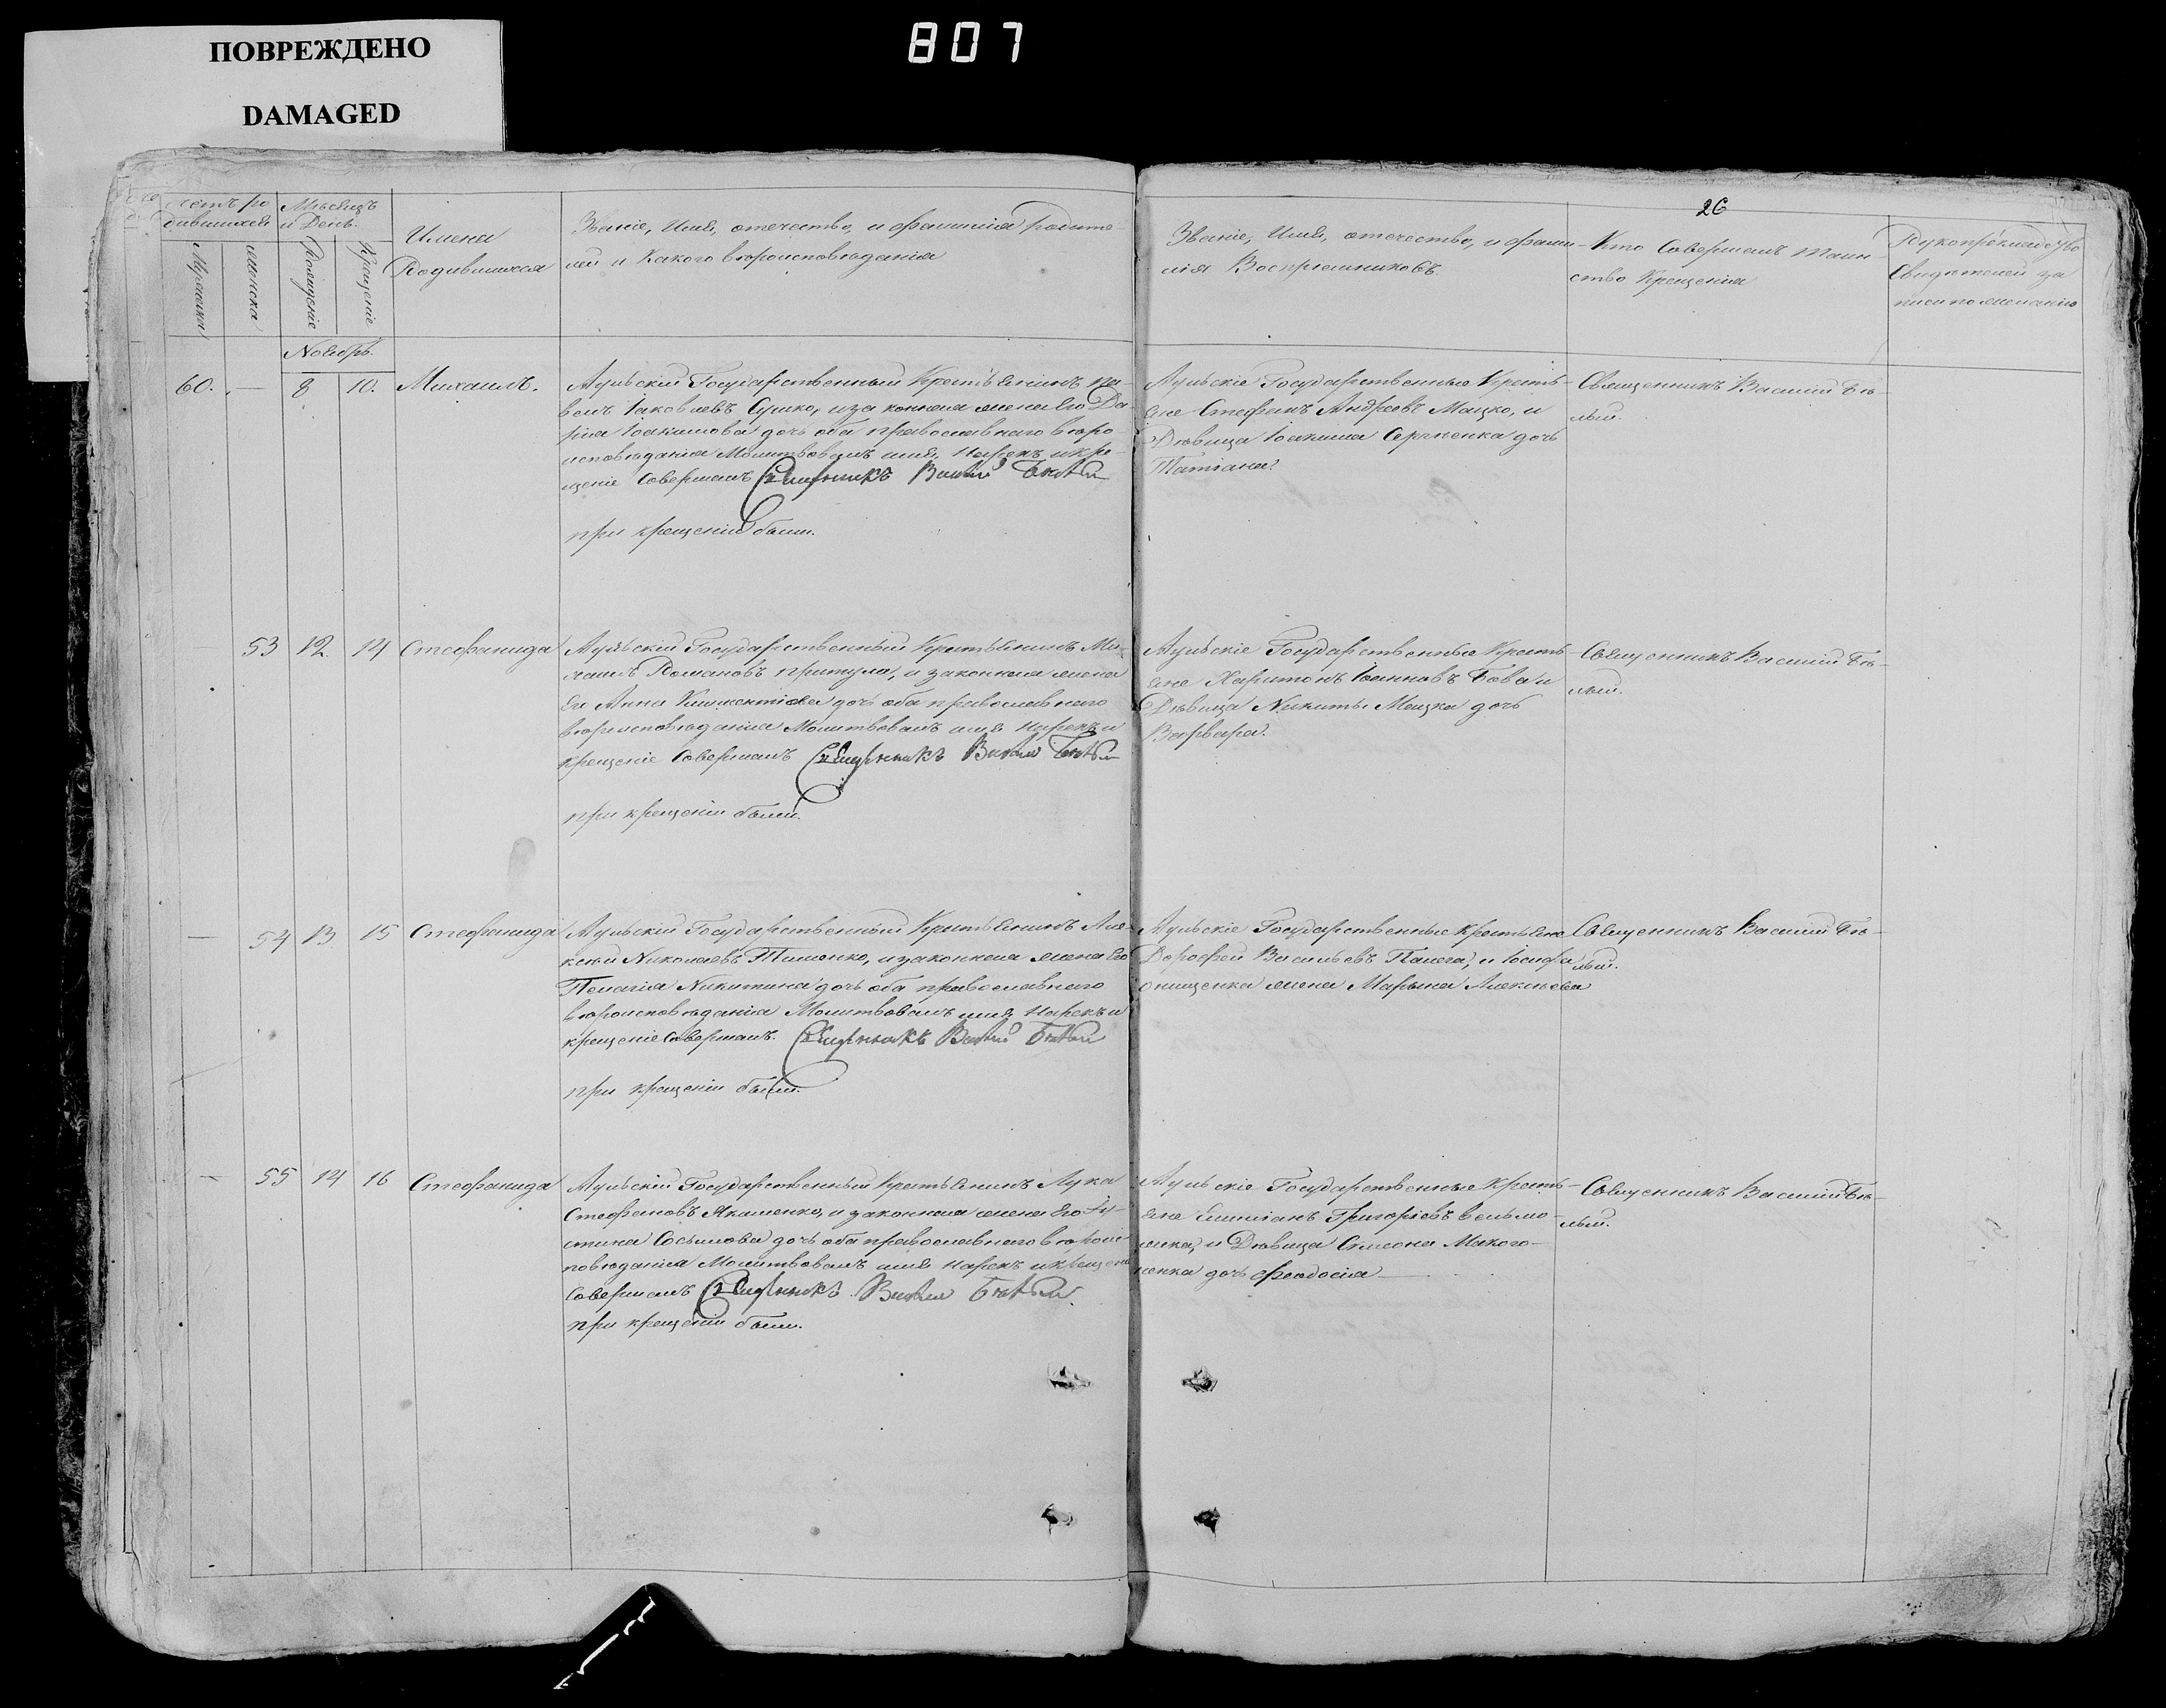 ПОВРЕЖДЕНО
DAMAGED
807
26
Счетъ ро
дившихся
Мужеска
женска
Мѣсяцъ
и День.
Рожденіе
Крещеніе
Имена
Родившихся
Званіе, Имя, отечество, и фамилія родите-
лей и Какого вѣроисповѣданія
Званіе, Имя, отечество, и фами-
лія Воспріемниковъ
Кто Совершалъ таин-
ство Крещенія
Рукоприкладство
Свидѣтелей за
писи по желанію
Ноябрь.
60. — 8 10. Михаилъ.
Аульскій Государственный Крестьянинъ Па-
велъ Іаковлевъ Сушко, и законная жена Его Да-
рія Іоакимова дочь оба православнаго вѣро-
исповѣданія Молитвовалъ имя Нарекъ и кре-
щеніе Совершалъ Священникъ Василій Бѣлый
при крещеніи были.
Аульскіе Государственные Кресть-
яне Стефанъ Андреевъ Мацко, и
Дѣвица Іоакима Сергѣенка дочь
Татіана.
Священникъ Василій Бѣ-
лый.
— 53 12. 14 Стефанида
Аульскій Государственный Крестьянинъ Ми-
хаилъ Романовъ притула, и законная жена
Его Анна Климентіева дочь оба православнаго
вѣроисповѣданія Молитвовалъ имя Нарекъ и
крещеніе Совершалъ Священникъ Василій Бѣлый
при крещеніи были.
Аульскіе Государственные Кресть-
яне Харитонъ Іоанновъ Бова и
Дѣвица Никиты Мацка дочь
Варвара.
Священникъ Василій Бѣ-
лый.
— 54 13 15 Стефанида
Аульскій Государственный Крестьянинъ Але-
ксѣй Николаевъ Тимонко, и законная жена Его
Пелагія Никитина дочь оба православнаго
вѣроисповѣданія Молитвовалъ имя Нарекъ и
крещеніе Совершалъ. Священникъ Василій Бѣлый
при крещеніи были.
Аульскіе Государственные крестьяне
Дорофей Васильевъ Папега, и Іосифа
онищенка жена Марѳина Алексѣева
Священникъ Василій Бѣ-
лый.
— 55 14 16 Стефанида
Аульскій Государственный Крестьянинъ Лука
Стефановъ Якименко, и законная жена Его
Сосимова дочь оба православнаго вѣроис-
повѣданія Молитвовалъ имя нарекъ и крещеніе
Совершалъ Священникъ Василій Бѣлый.
при крещеніи были.
Аульскіе Государственные Кресть-
яне Григоріевъ вельмо-
женка, и Дѣвица Симеона Макого-
ненка дочь Феодосія
Священникъ Василій Бѣ-
лый.